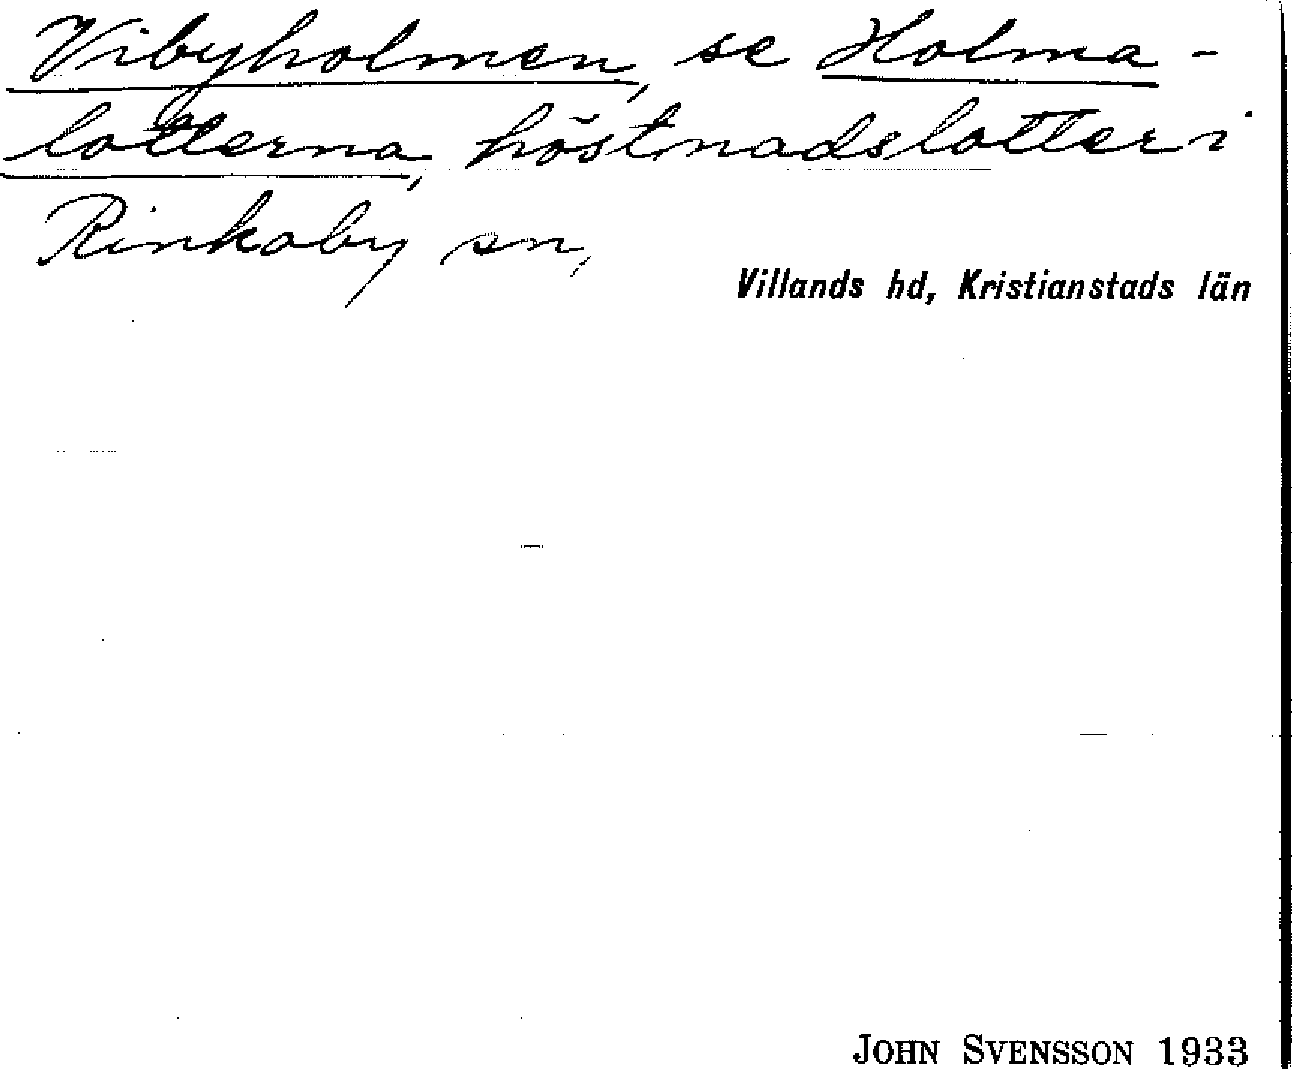 Vibyholmen, se Holma-
lotterna, höstnadslotter i
Rinkaby sn,
Villands hd, Kristianstads län
JOHN SVENSSON 1933